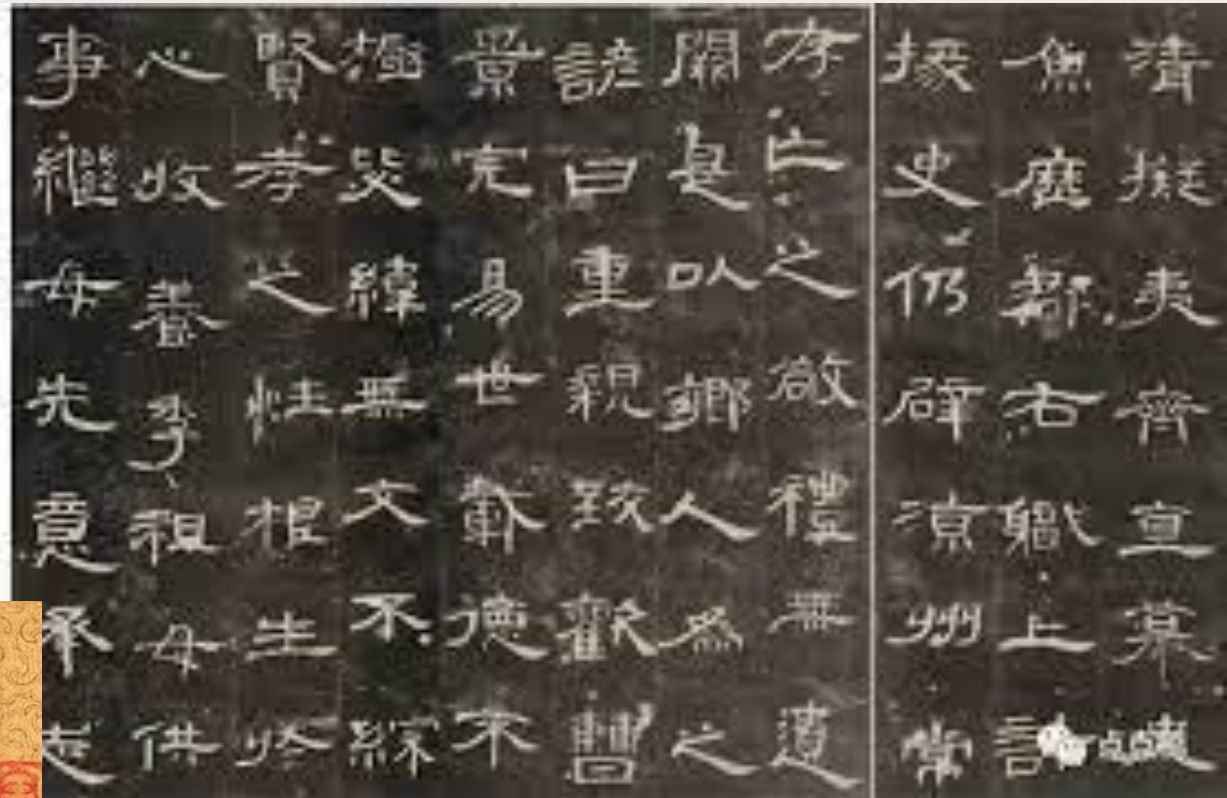 清擬夷齊直慕史
魚歷郡右職上計
掾史仍辟涼州常
存亡之敬禮無遺
闕是以鄉人為之
諺曰重親致歡曹
景完易世載德不
極毖緯無文不綜
賢孝之性根生於
心收養季祖母供
事繼母先意承志
点点